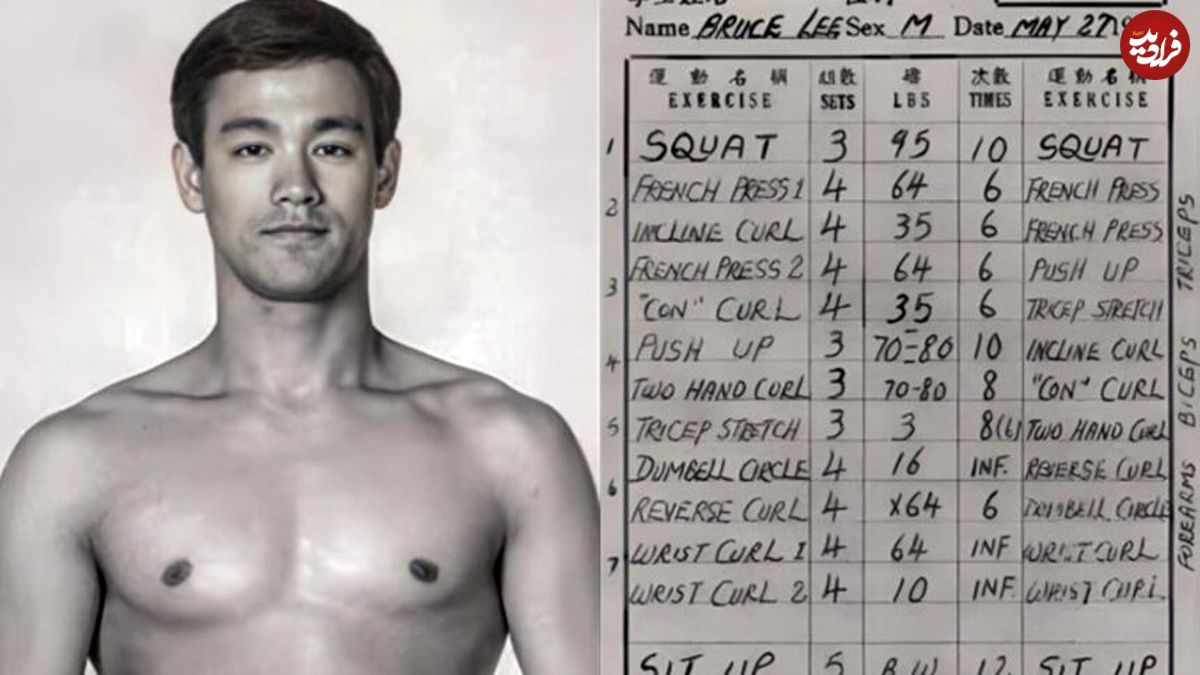 Name BRUCE LEE Sex M Date MAY 27 19
فرادید
運動名稱 組數 磅 次數 運動名稱
EXERCISE SETS LBS TIMES EXERCISE
1 SQUAT 3 95 10 SQUAT
FRENCH PRESS 1 4 64 6 FRENCH PRESS
2 INCLINE CURL 4 35 6 FRENCH PRESS
FRENCH PRESS 2 4 64 6 PUSH UP
3 "CON" CURL 4 35 6 TRICEP STRETCH
PUSH UP 3 70-80 10 INCLINE CURL
4 TWO HAND CURL 3 70-80 8 "CON" CURL
5 TRICEP STRETCH 3 3 8(6) TWO HAND CURL
DUMBELL CIRCLE 4 16 INF. REVERSE CURL
6 REVERSE CURL 4 x64 6 DUMBELL CIRCLE
WRIST CURL 1 4 64 INF WRIST CURL
7 WRIST CURL 2 4 10 INF. WRIST CURL
SIT UP 5 B.W. 12 SIT UP
TRICEPS
BICEPS
FOREARMS